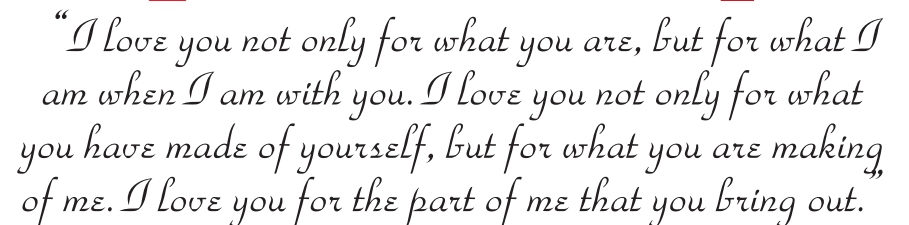 “I love you not only for what you are, but for what I
am when I am with you. I love you not only for what
you have made of yourself, but for what you are making
of me. I love you for the part of me that you bring out.”